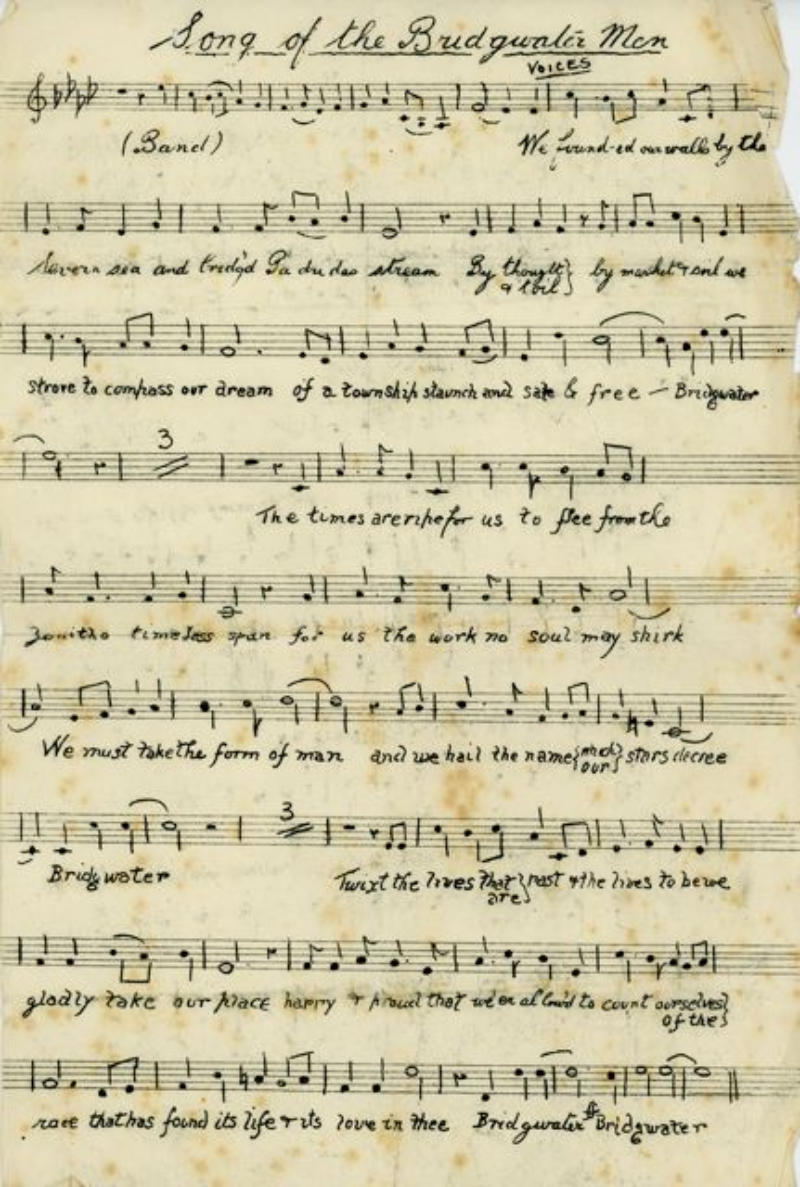 Song of the Bridgwater Men
VOICES
(Band) We found-ed our walls by the
Severn sea and bridg'd stream By thought & toil by market & soil we
strove to compass our dream of a township staunch and safe & free — Bridgwater
3
The times are ripe for us to flee from the
timeless span for us the work no soul may shirk
We must take the form of man and we hail the name which our stars decree
3
Bridgwater Twixt the lives that are past & the lives to be we
gladly take our place happy & proud that we're allow'd to count ourselves of the
race that has found its life & its love in thee Bridgwater Bridgwater